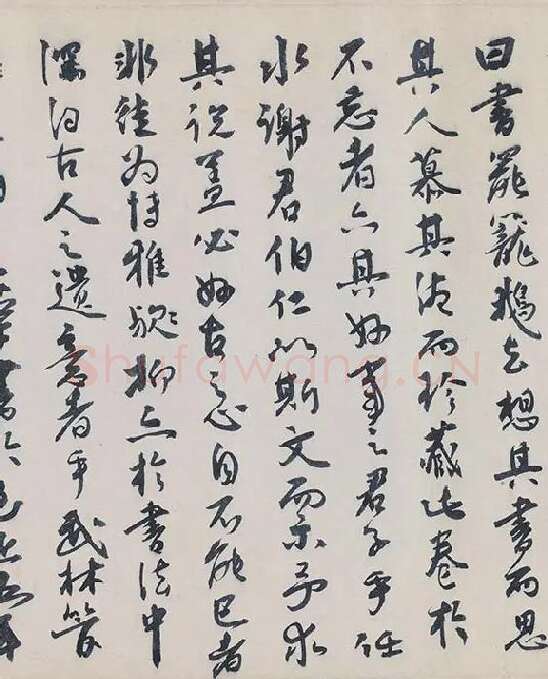 曰書罷籠鵝去想其書而思
其人慕其法而珍藏此卷於
不忘者亦具好事之君子乎任
水謝君伯仁以斯文而示予求
其說蓋必好古之心自不能已者
非徒為博雅歟抑亦於書法中
深得古人之遺意者乎武林管
Shufawang.CN